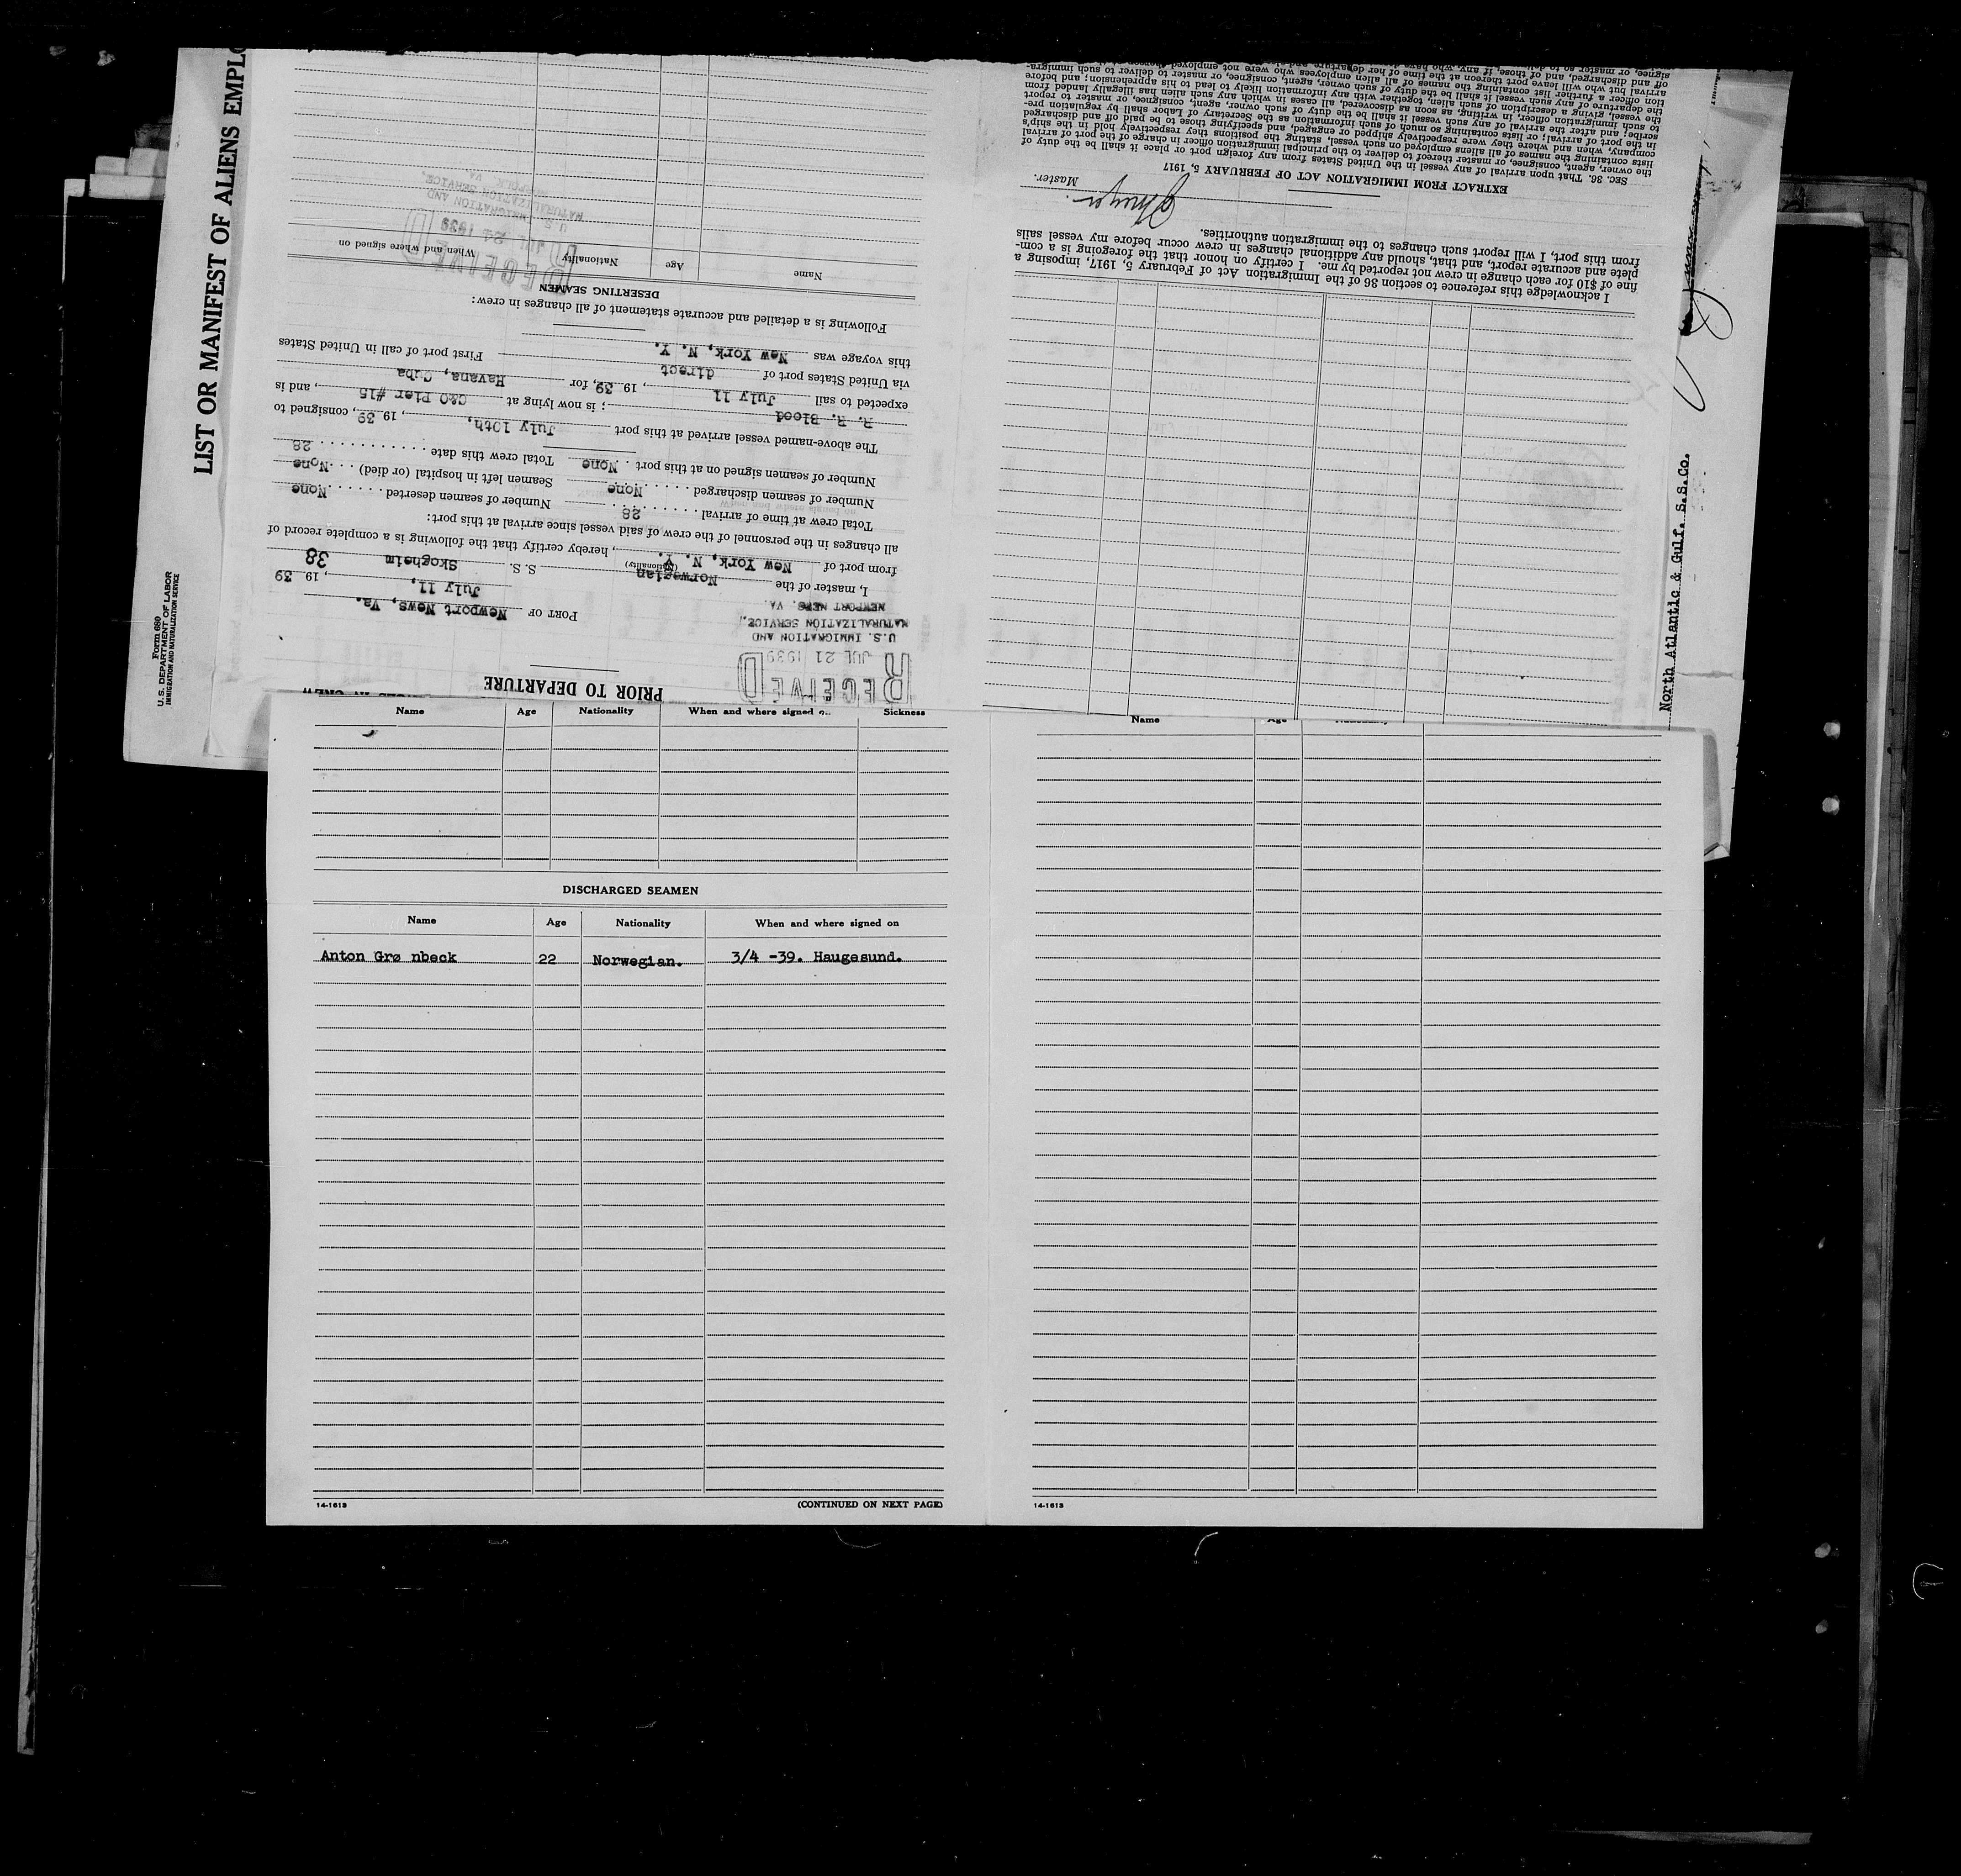 LIST OR MANIFEST OF ALIENS EMPLO
Form 680
U. S. DEPARTMENT OF LABOR
IMMIGRATION AND NATURALIZATION SERVICE
PRIOR TO DEPARTURE
RECEIVED
JUL 21 1939
U.S. IMMIGRATION AND
NATURALIZATION SERVICE,
NEWPORT NEWS, VA.
PORT OF Newport News, Va.
July 11, 19 39
I, master of the Norwegian S. S. Skogheim 38
(Nationality)
from port of New York, N. Y., hereby certify that the following is a complete record of
all changes in the personnel of the crew of said vessel since arrival at this port:
Total crew at time of arrival 28 Number of seamen deserted None
Number of seamen discharged None Seamen left in hospital (or died) None
Number of seamen signed on at this port None Total crew this date 28
The above-named vessel arrived at this port July 10th, 19 39, consigned to
R. R. Blood; is now lying at C&O Pier #15, and is
expected to sail July 11, 19 39, for Havana, Cuba
via United States port of direct First port of call in United States
this voyage was New York, N. Y.
Following is a detailed and accurate statement of all changes in crew:
DESERTING SEAMEN
Name Age Nationality When and where signed on
RECEIVED
JUL 24 1939
U. S. IMMIGRATION AND
NATURALIZATION SERVICE,
NORFOLK, VA.
I acknowledge this reference to section 36 of the Immigration Act of February 5, 1917, imposing a
fine of $10 for each change in crew not reported by me. I certify on honor that the foregoing is a com-
plete and accurate report, and that, should any additional changes in crew occur before my vessel sails
from this port, I will report such changes to the immigration authorities.
Master.
EXTRACT FROM IMMIGRATION ACT OF FEBRUARY 5, 1917
SEC. 36. That upon arrival of any vessel in the United States from any foreign port or place it shall be the duty of
the owner, agent, consignee, or master thereof to deliver to the principal immigration officer in charge of the port of arrival
lists containing the names of all aliens employed on such vessel, stating the positions they respectively hold in the ship's
company, when and where they were respectively shipped or engaged, and specifying those to be paid off and discharged
in the port of arrival; or lists containing so much of such information as the Secretary of Labor shall by regulation pre-
scribe; and after the arrival of any such vessel it shall be the duty of such owner, agent, consignee, or master to report
to such immigration officer, in writing, as soon as discovered, all cases in which any such alien has illegally landed from
the vessel, giving a description of such alien, together with any information likely to lead to his apprehension; and before
the departure of any such vessel it shall be the duty of such owner, agent, consignee, or master to deliver to such immigra-
tion officer a further list containing the names of all alien employees who were not employed thereon at the time of the
arrival but who will leave port thereon at the time of her departure and
off and discharged, and of those, if any, who have
signee, or master so to
North Atlantic & Gulf. S.S.Co.
Name Age Nationality When and where signed Sickness
Name Age
DISCHARGED SEAMEN
Name Age Nationality When and where signed on
Anton Grø nbeck 22 Norwegian. 3/4 -39. Haugesund.
14-1613 (CONTINUED ON NEXT PAGE)
14-1613